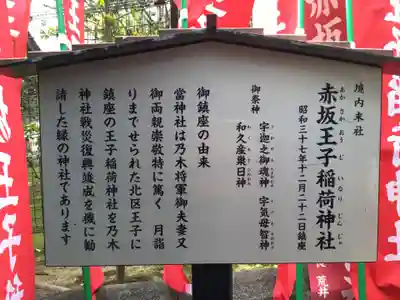 境内末社
赤坂王子稲荷神社
あかさかおうじいなりじんじゃ
昭和三十七年十二月二十二日鎮座
御祭神
宇迦之御魂神 宇気母智神
和久産巣日神
御鎮座の由来
當神社は乃木将軍御夫妻又
御両親崇敬特に篤く 月詣
りまでせられた北区王子に
鎮座の王子稲荷神社を乃木
神社戦災復興竣成を機に勧
請した縁の神社であります
赤坂
荒井